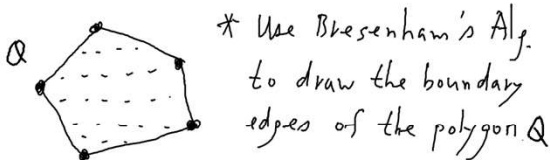 Q
* Use Bresenham's Alg.
to draw the boundary
edges of the polygon Q